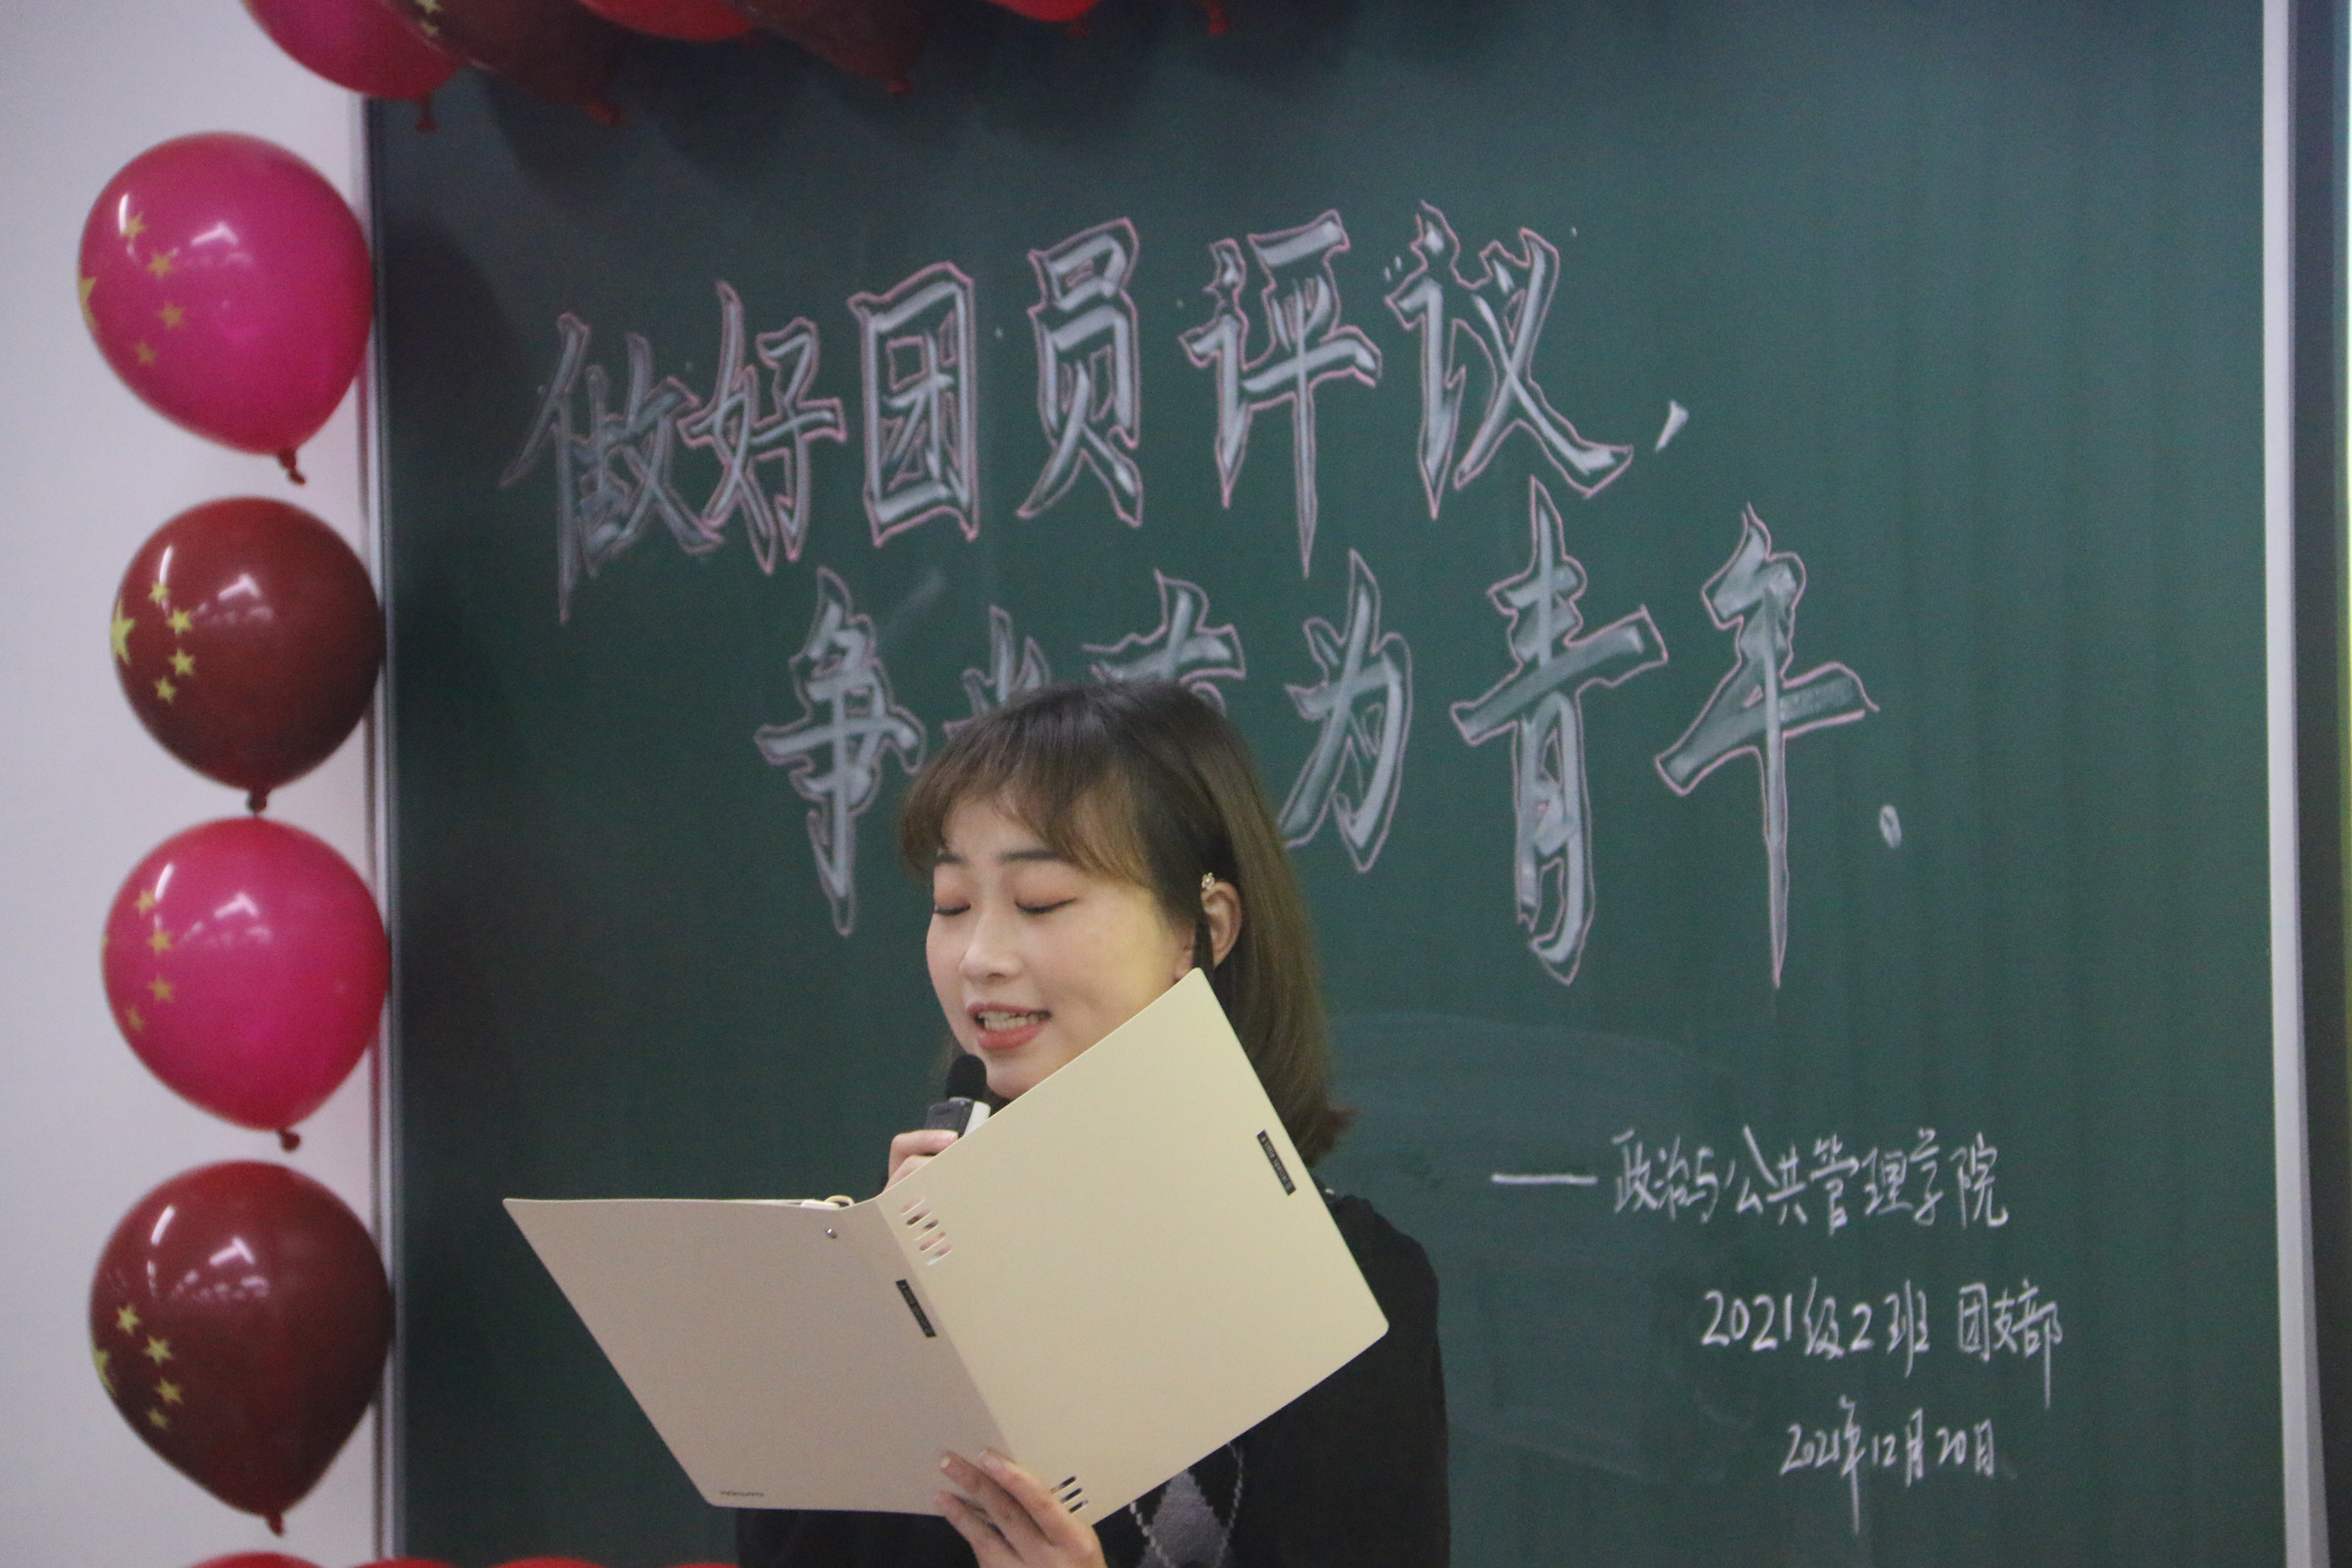 做好团员评议，
争当有为青年。
——政治与公共管理学院
2021级2班 团支部
2021年12月20日
KOKUYO